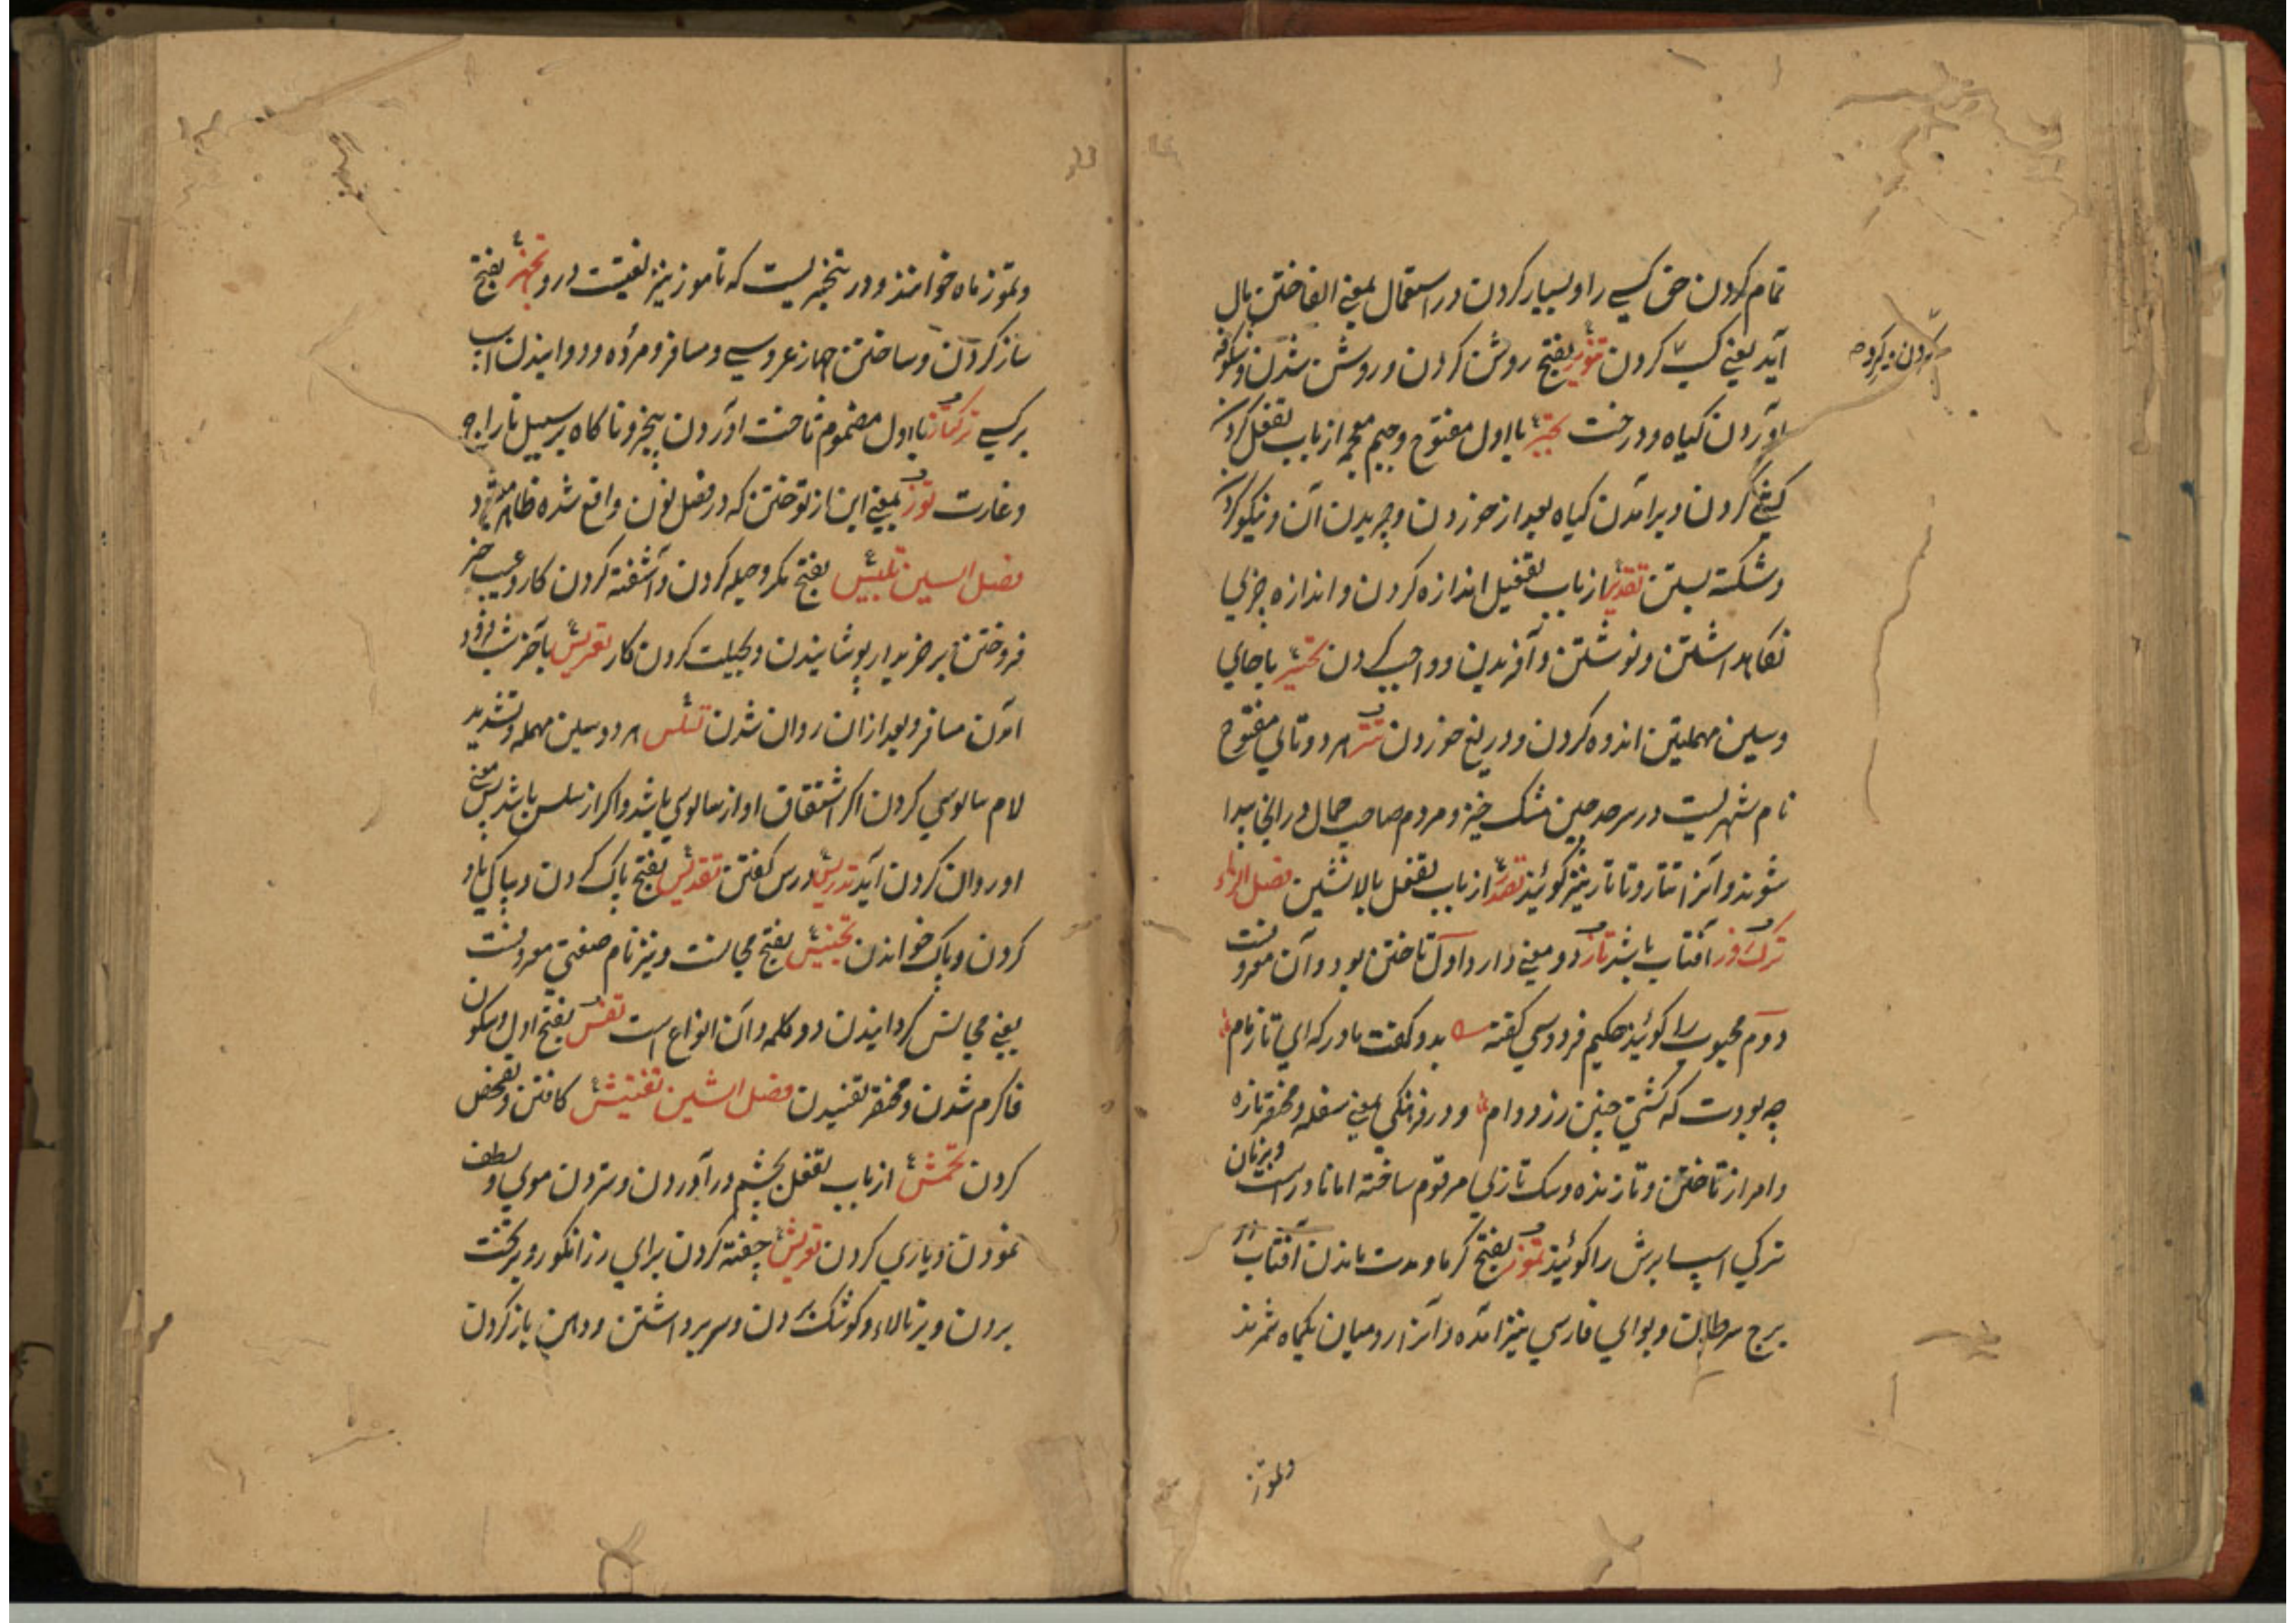 تمام کردن حق کسے را و بسیار کردن و در استعمال بمعنے الفاختن مال
آید یعنے کسب کردن تنویر بفتح روشن کردن و روشن شدن و شکوفه
آوردن کیاه و درخت تجبر بااول مفتوح و جیم معجمه از باب تفعل کردن
کردن و برآمدن کیاه بعد از خوردن و چریدن آن و نیکو کردن
و شکسته بستن تقدیر از باب تفعیل اندازه کردن و اندازه چیزي
نکاهداشتن و نوشتن و آفریدن و واجب کردن تحسر باحاي
و سین مهملتین اندوه کردن و دریغ خوردن تتر هر دو تاي مفتوح
نام شهریست در سرحد چین مشک خیز و مردم صاحب جمال در انجا پیدا
شوند و آنرا تتار و تاتار نیز کوئیند تصدر از باب تفعل بالا نشین فصل الزاء
ترک روز آفتاب باشد تاز دو معنے دارد اول تاختن بود و آن معروفست
دوم محبوب را کوئیند حکیم فردوسي کفته بدو کفت مادر که اي تاز مام
چه بودت که کشتي چنین زرد وام و در فرهنکي بمعنے سفله و مختصر تازه
و امر از تاختن و تازنده و سک تازي مرقوم ساخته اما نادر است و بزبان
ترکي اسپ ابرش را کوئیند تموز بفتح کرما و مدت ماندن آفتاب در
برج سرطان و بواي فارسي نیز آمده و آنرا رومیان یکماه شمرند
و تموز
و تموز ماه خوانند و در تیخیر یست که تاموز نیز لغیست درو تجهز بفتح
ساز کردن و ساختن جهاز عروسے و مسافر و مرده و دوانیدن اسب
بر کسے ترکتاز تا اول مضموم تاخت آوردن بیخبر و ناکاه بر سبیل تاراج
و غارت توز بمعنے این از توختن که در فصل نون واقع شده ظاهر میشود
فصل السین تلبیس بفتح مکر و حیله کردن و آشفته کردن کار و عیب چیز
فروختن بر خریدار پوشانیدن و بحیلت کردن کار تعریس بآخر شب فرود
امدن مسافر و بعد از ان روان شدن تسلس هر دو سین مهمله و تشدید
لام سالوسي کردن اکر اشتقاق او از سالوسي باشد و اکر از سلس باشد پس بمعنے
او روان کردن آید تدریس درس کفتن تقدیس بفتح پاک کردن و بپاکي یاد
کردن و پاک خواندن تجنیس بفتح مجانست و نیز نام صنعتي معروفست
یعنے مجانس کردانیدن دو کلمه و آن انواع است تفس بفتح اول و سکون
فا کرم شدن و مختصر تفسیدن فصل الشین تفتیش کافتن و تفحص
کردن تخمش از باب تفعل بخشم درآوردن و ستردن موي و لطف
نمودن و یاري کردن تعریش چفته کردن براي رز انکور و برکشت
بردن و بر بالاء و کوشک کردن و سر برداشتن و دهن باز کردن